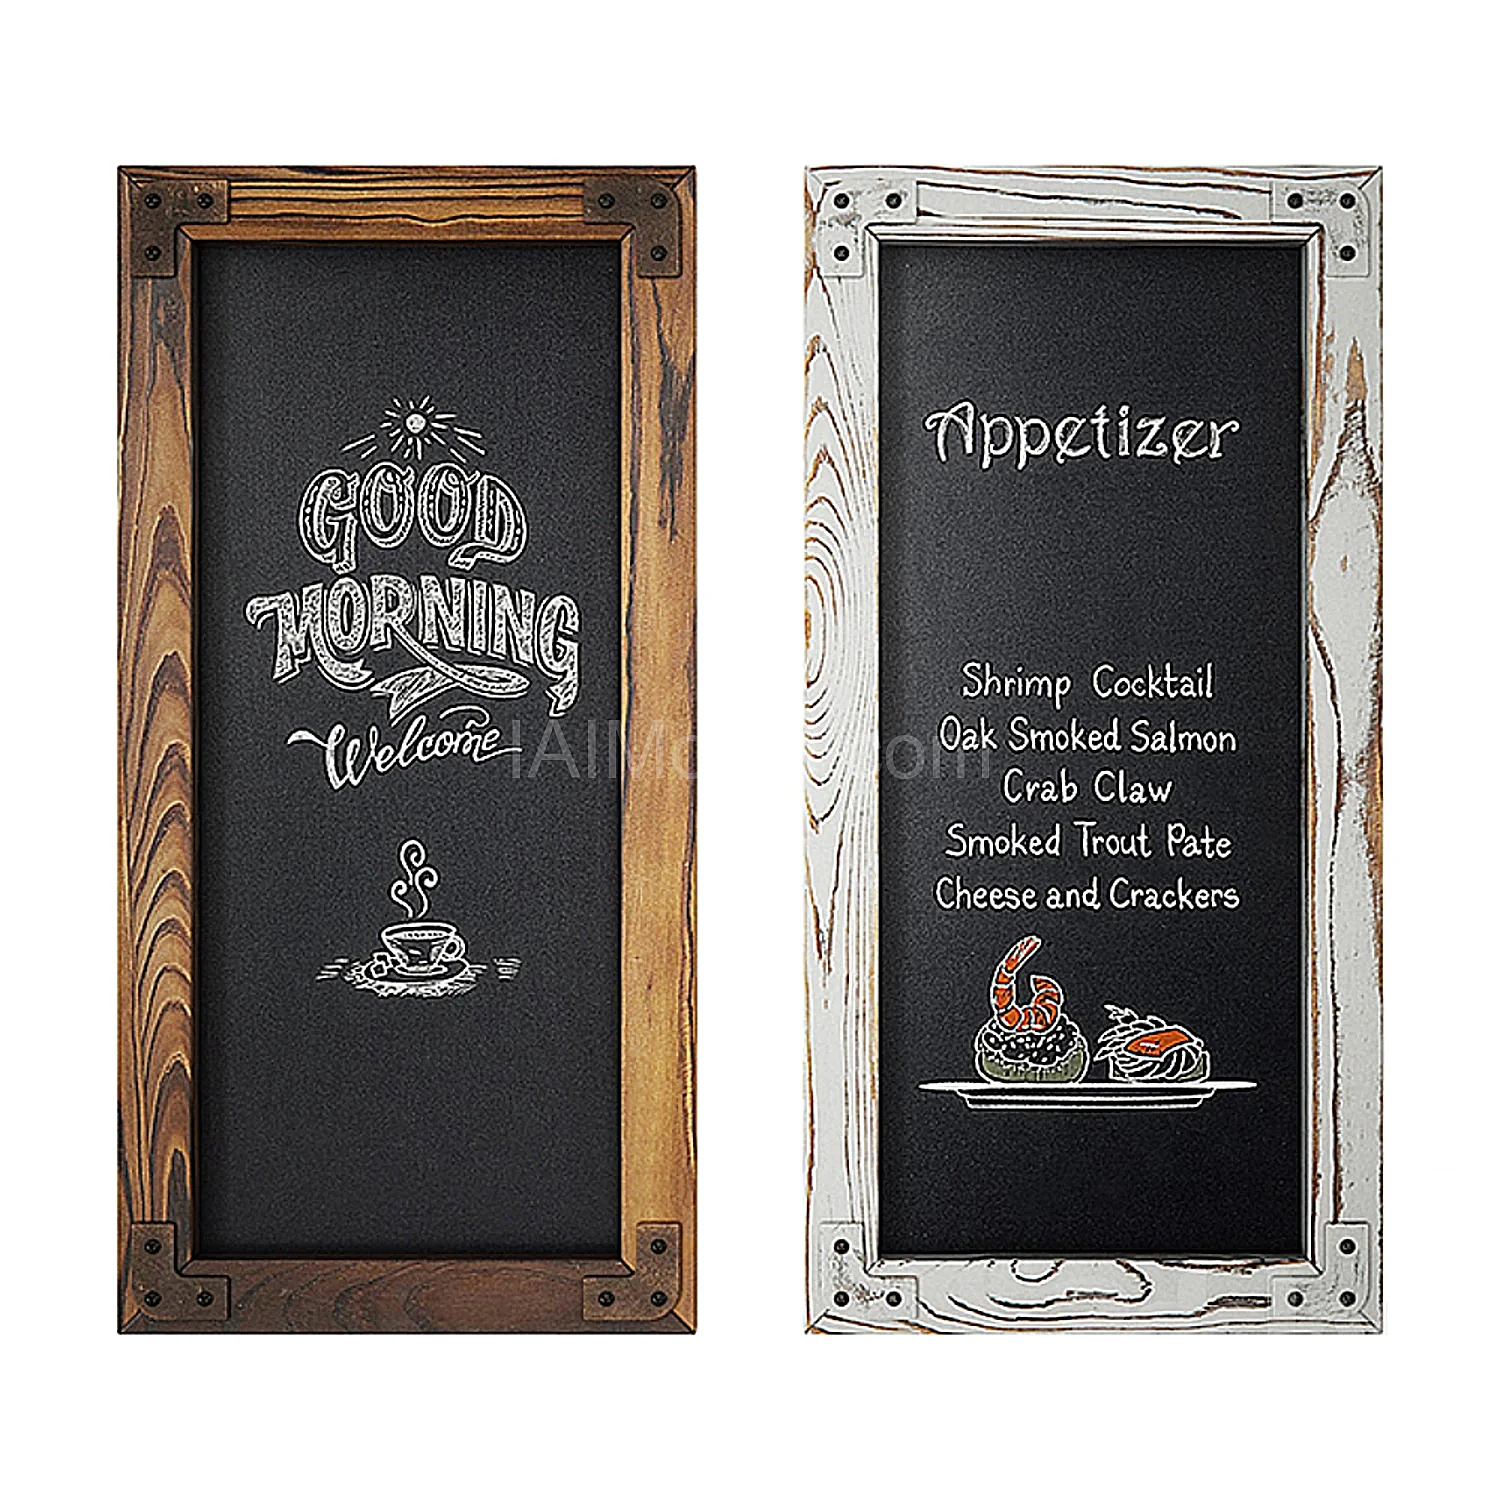 GOOD
MORNING
Welcome
Appetizer
Shrimp Cocktail
Oak Smoked Salmon
Crab Claw
Smoked Trout Pate
Cheese and Crackers